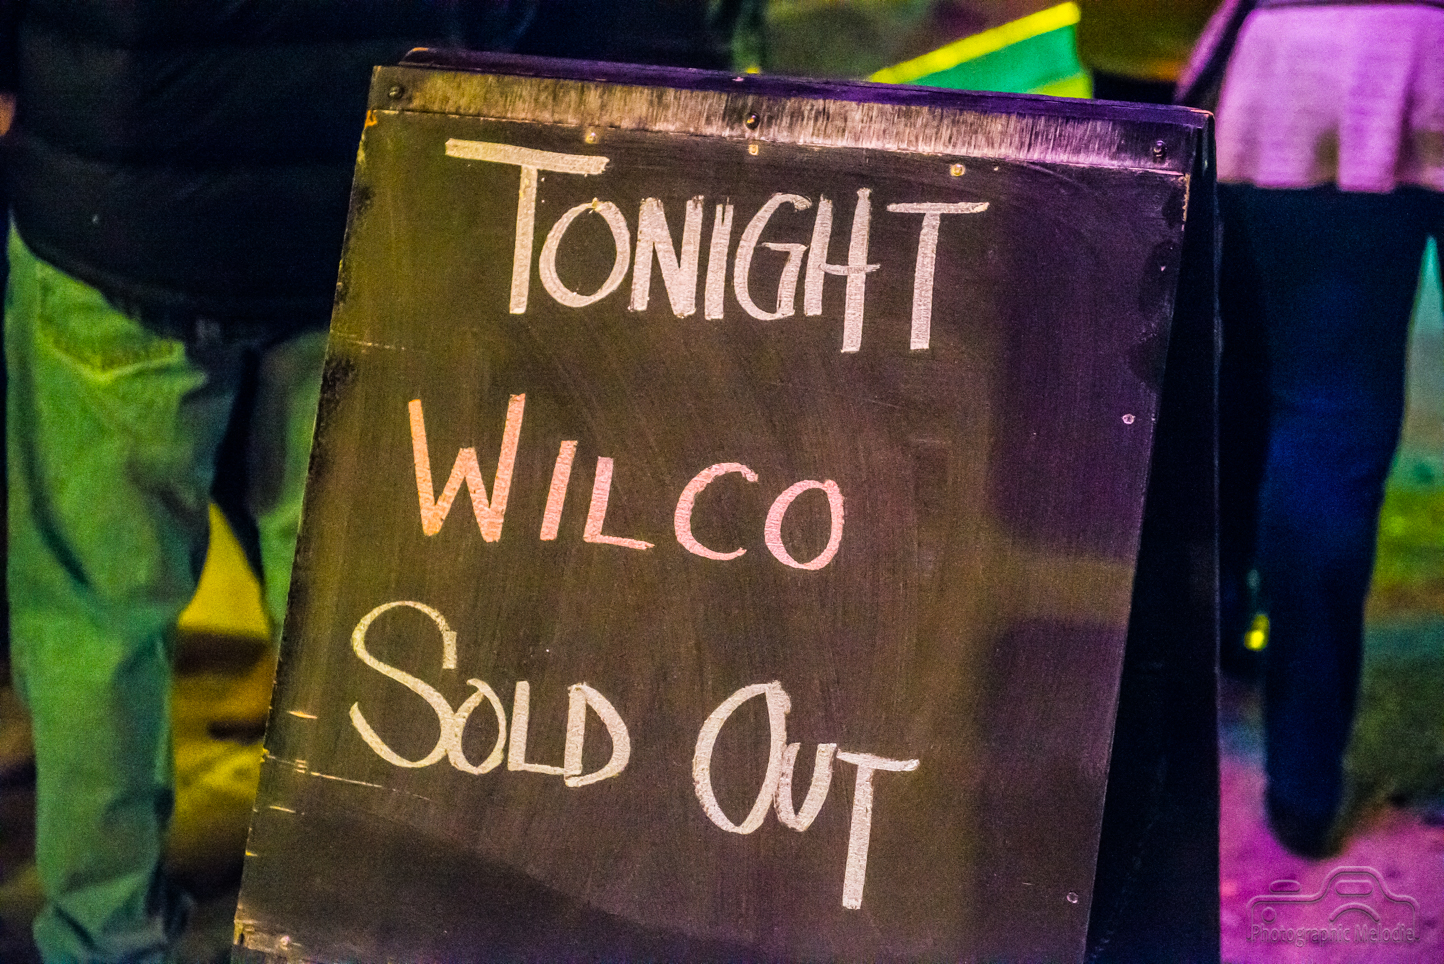 TONIGHT
WILCO
SOLD OUT
Photographic Melodie